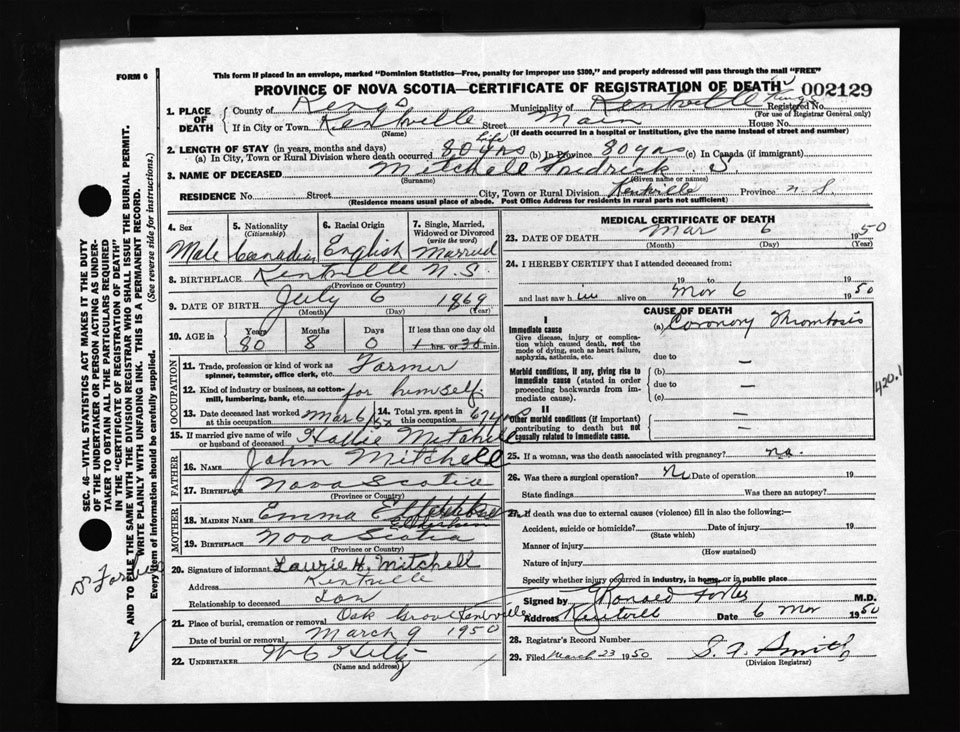 FORM 6
This form if placed in an envelope, marked "Dominion Statistics—Free, penalty for improper use $300," and properly addressed will pass through the mail "FREE"
PROVINCE OF NOVA SCOTIA—CERTIFICATE OF REGISTRATION OF DEATH
002129
1. PLACE OF DEATH
County of Kings Municipality of Kentville Kings Registered No.
(For use of Registrar General only)
If in City or Town Kentville Street Main House No.
(Name) (If death occurred in a hospital or institution, give the name instead of street and number)
2. LENGTH OF STAY (in years, months and days) Life
(a) In City, Town or Rural Division where death occurred 80 yrs (b) In Province 80 yrs (c) In Canada (if immigrant)
3. NAME OF DECEASED Mitchell Fredrick S.
(Surname) (Given name or names)
RESIDENCE No. Street City, Town or Rural Division Kentville Province N.S
(Residence means usual place of abode. Post Office Address for residents in rural parts not sufficient)
4. Sex Male
5. Nationality (Citizenship) Canadian
6. Racial Origin English
7. Single, Married, Widowed or Divorced (write the word) Married
8. BIRTHPLACE Kentville N.S.
(Province or Country)
9. DATE OF BIRTH July 6 1869
(Month) (Day) (Year)
10. AGE in Years 80 Months 8 Days 0 If less than one day old hrs. or min.
OCCUPATION
11. Trade, profession or kind of work as spinner, teamster, office clerk, etc. Farmer
12. Kind of industry or business, as cotton-mill, lumbering, bank, etc. for himself
13. Date deceased last worked at this occupation Mar 6/50
14. Total yrs. spent in this occupation 67 yrs
15. If married give name of wife or husband of deceased Hallie Mitchell
FATHER
16. NAME John Mitchell
17. BIRTHPLACE Nova Scotia
(Province or Country)
MOTHER
18. MAIDEN NAME Emma
19. BIRTHPLACE Nova Scotia
(Province or Country)
20. Signature of informant Laurie H. Mitchell
Address Kentville
Relationship to deceased Son
21. Place of burial, cremation or removal Oak Grove Kentville
Date of burial or removal March 9 1950
22. UNDERTAKER
(Name and address)
MEDICAL CERTIFICATE OF DEATH
23. DATE OF DEATH Mar 6 1950
(Month) (Day) (Year)
24. I HEREBY CERTIFY that I attended deceased from:
19 to 19
and last saw him alive on Mar 6 1950
CAUSE OF DEATH
I
Immediate cause
Give disease, injury or complication which caused death, not the mode of dying, such as heart failure, asphyxia, asthenia, etc.
(a) Coronary Thrombosis
due to —
Morbid conditions, if any, giving rise to immediate cause (stated in order proceeding backwards from immediate cause).
(b)
due to —
(c)
420.1
II
Other morbid conditions (if important) contributing to death but not causally related to immediate cause.
—
—
25. If a woman, was the death associated with pregnancy? no.
26. Was there a surgical operation? No Date of operation 19
State findings Was there an autopsy?
27. If death was due to external causes (violence) fill in also the following:—
Accident, suicide or homicide? Date of injury 19
(State which)
Manner of injury
(How sustained)
Nature of injury
Specify whether injury occurred in industry, in home, or in public place
Signed by Ronald Forbes M.D.
Address Kentville Date 6 Mar 1950
28. Registrar's Record Number
29. Filed March 23 1950 S. A. Smith
(Division Registrar)
SEC. 46—VITAL STATISTICS ACT MAKES IT THE DUTY
OF THE UNDERTAKER OR PERSON ACTING AS UNDERTAKER
TO OBTAIN ALL THE PARTICULARS REQUIRED
IN THE "CERTIFICATE OF REGISTRATION OF DEATH"
AND TO FILE THE SAME WITH THE DIVISION REGISTRAR WHO SHALL ISSUE THE BURIAL PERMIT.
WRITE PLAINLY WITH UNFADING INK. THIS IS A PERMANENT RECORD.
Every item of information should be carefully supplied. (See reverse side for instructions.)
Dr Forbes